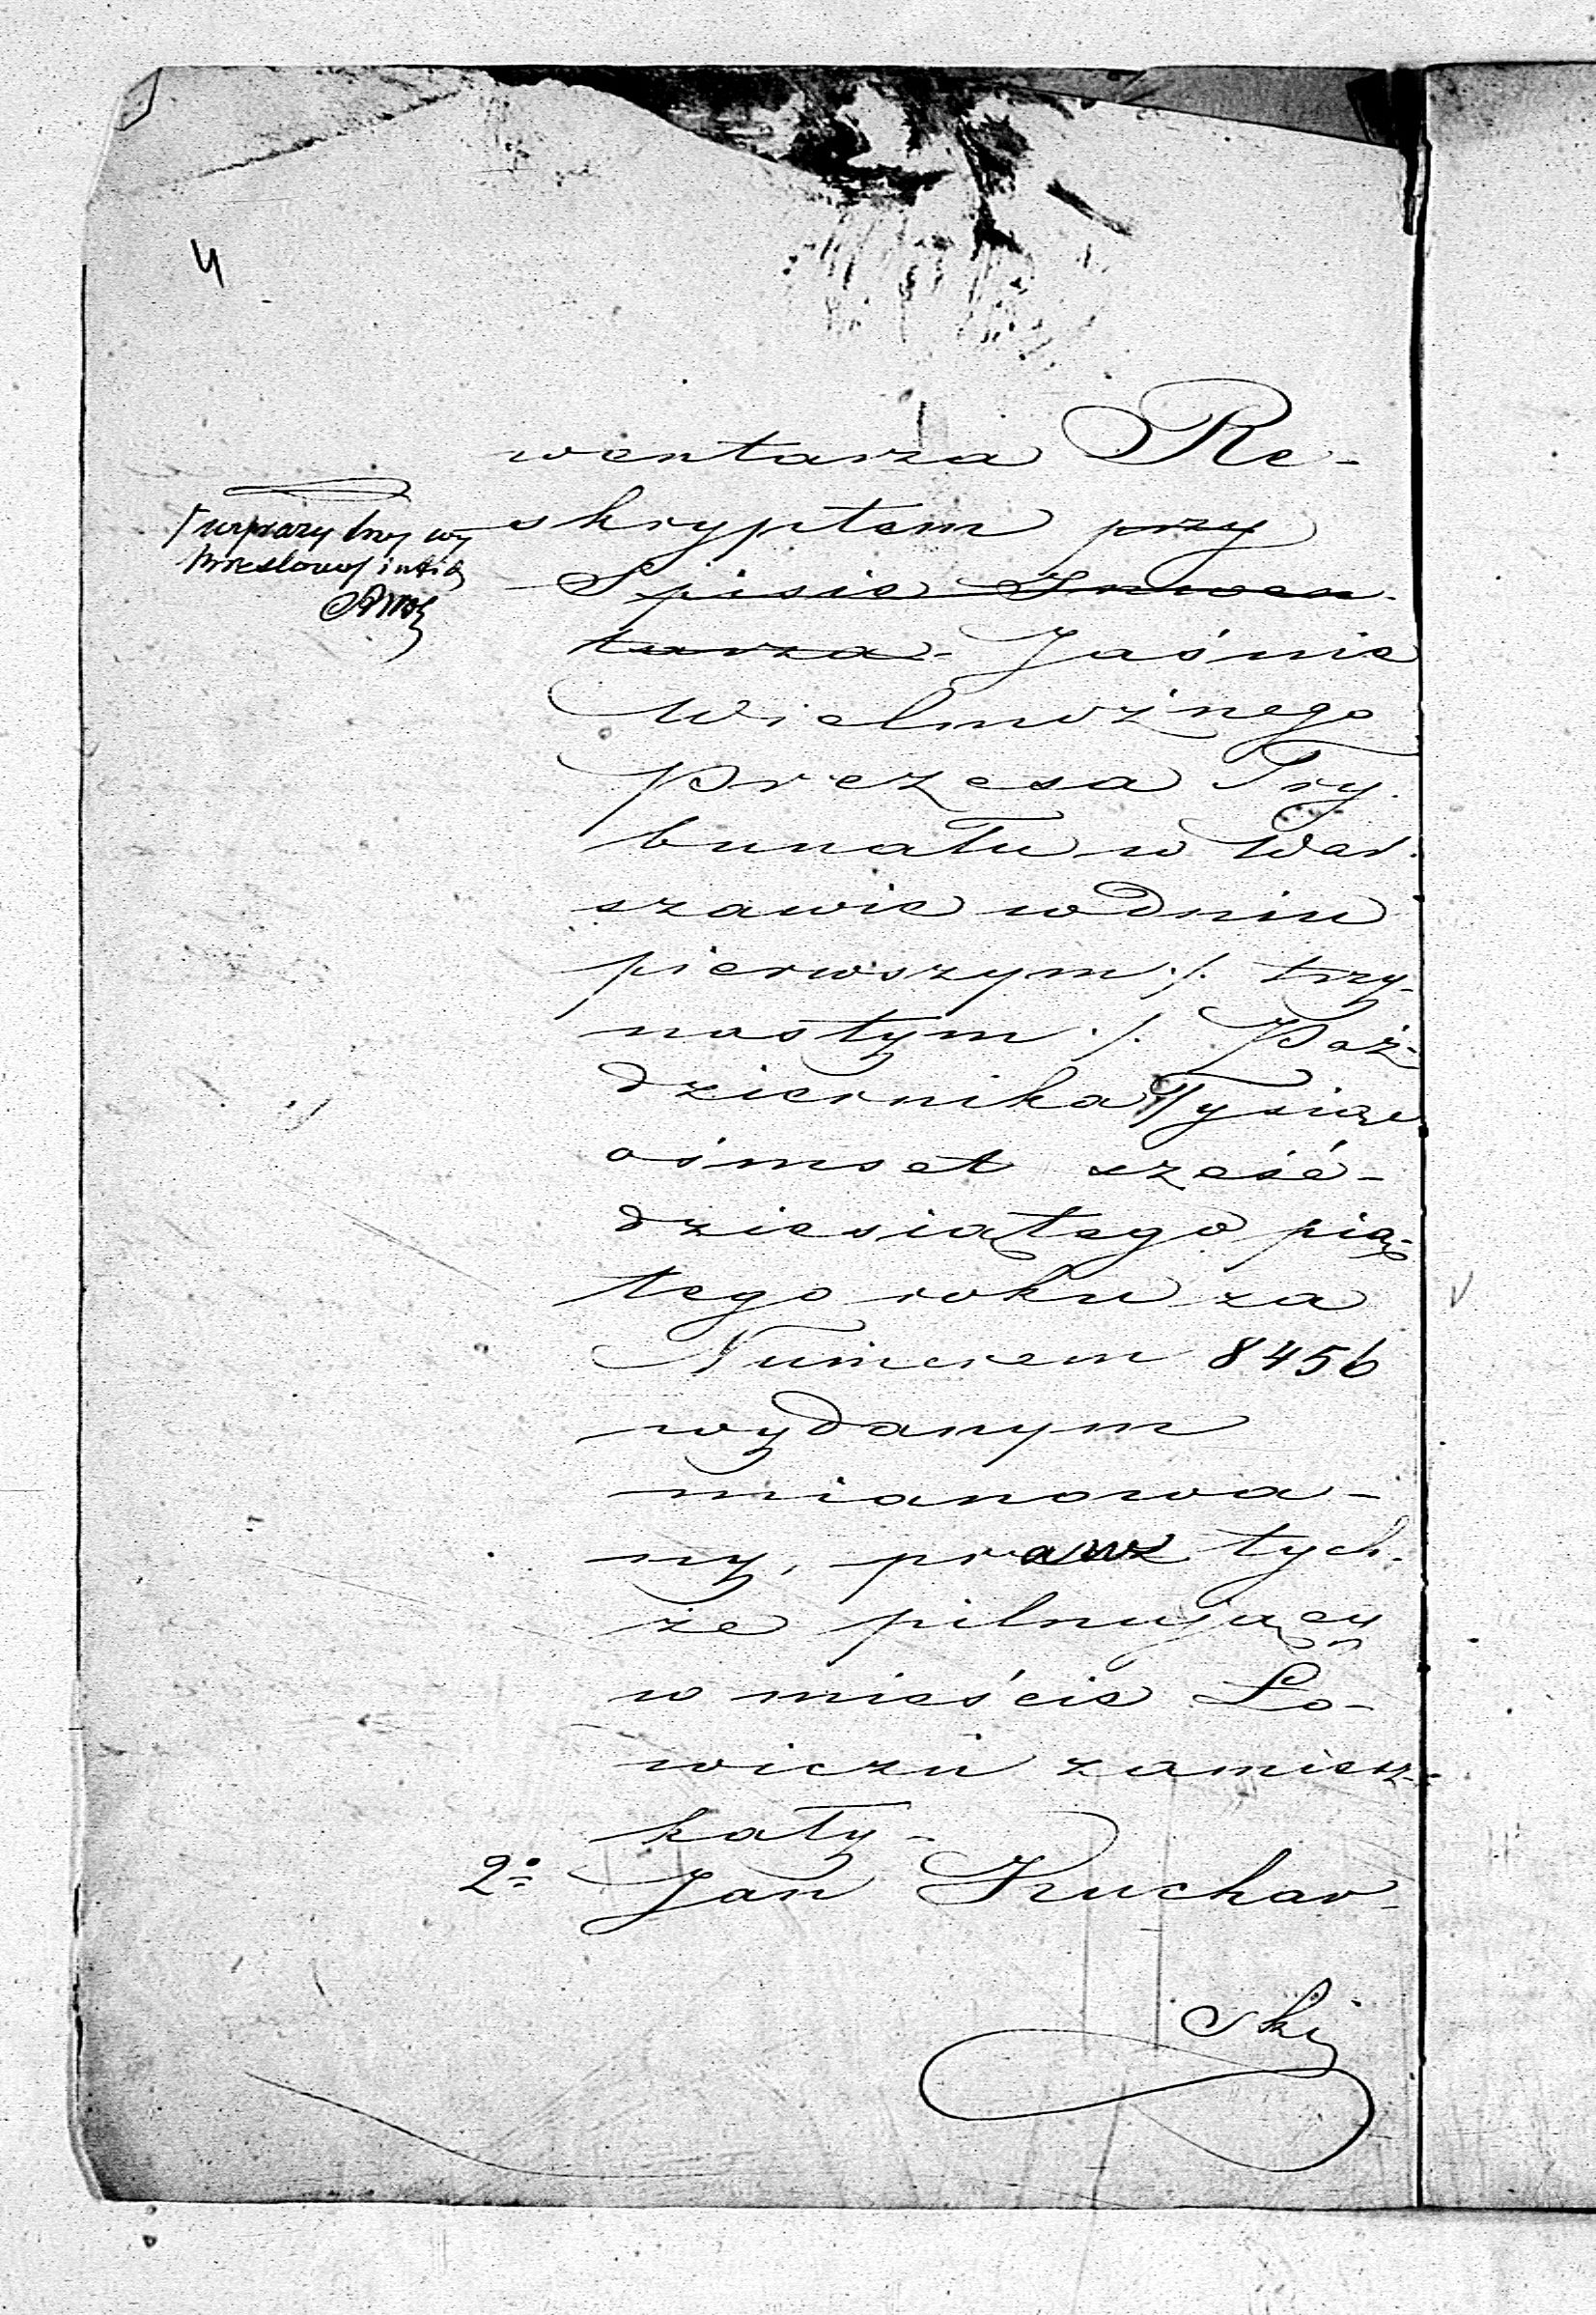 4
wentarza Re-
skryptem przy
Spisie Inwen-
tarza - Jaśnie
Wielmożnego
Prezesa Try-
bunału w War-
szawie w Dniu
pierwszym ./. trzy-
nastym ./. Paź-
dziernika Tysiąc
ośmset sześć-
dziesiątego pią-
tego roku za
Numerem 8456
wydanym
mianowa-
ny, praw tych-
że pilnujący
w mieście Ło-
wiczu zamiesz-
kały -
2o Jan Kuchar-
ski